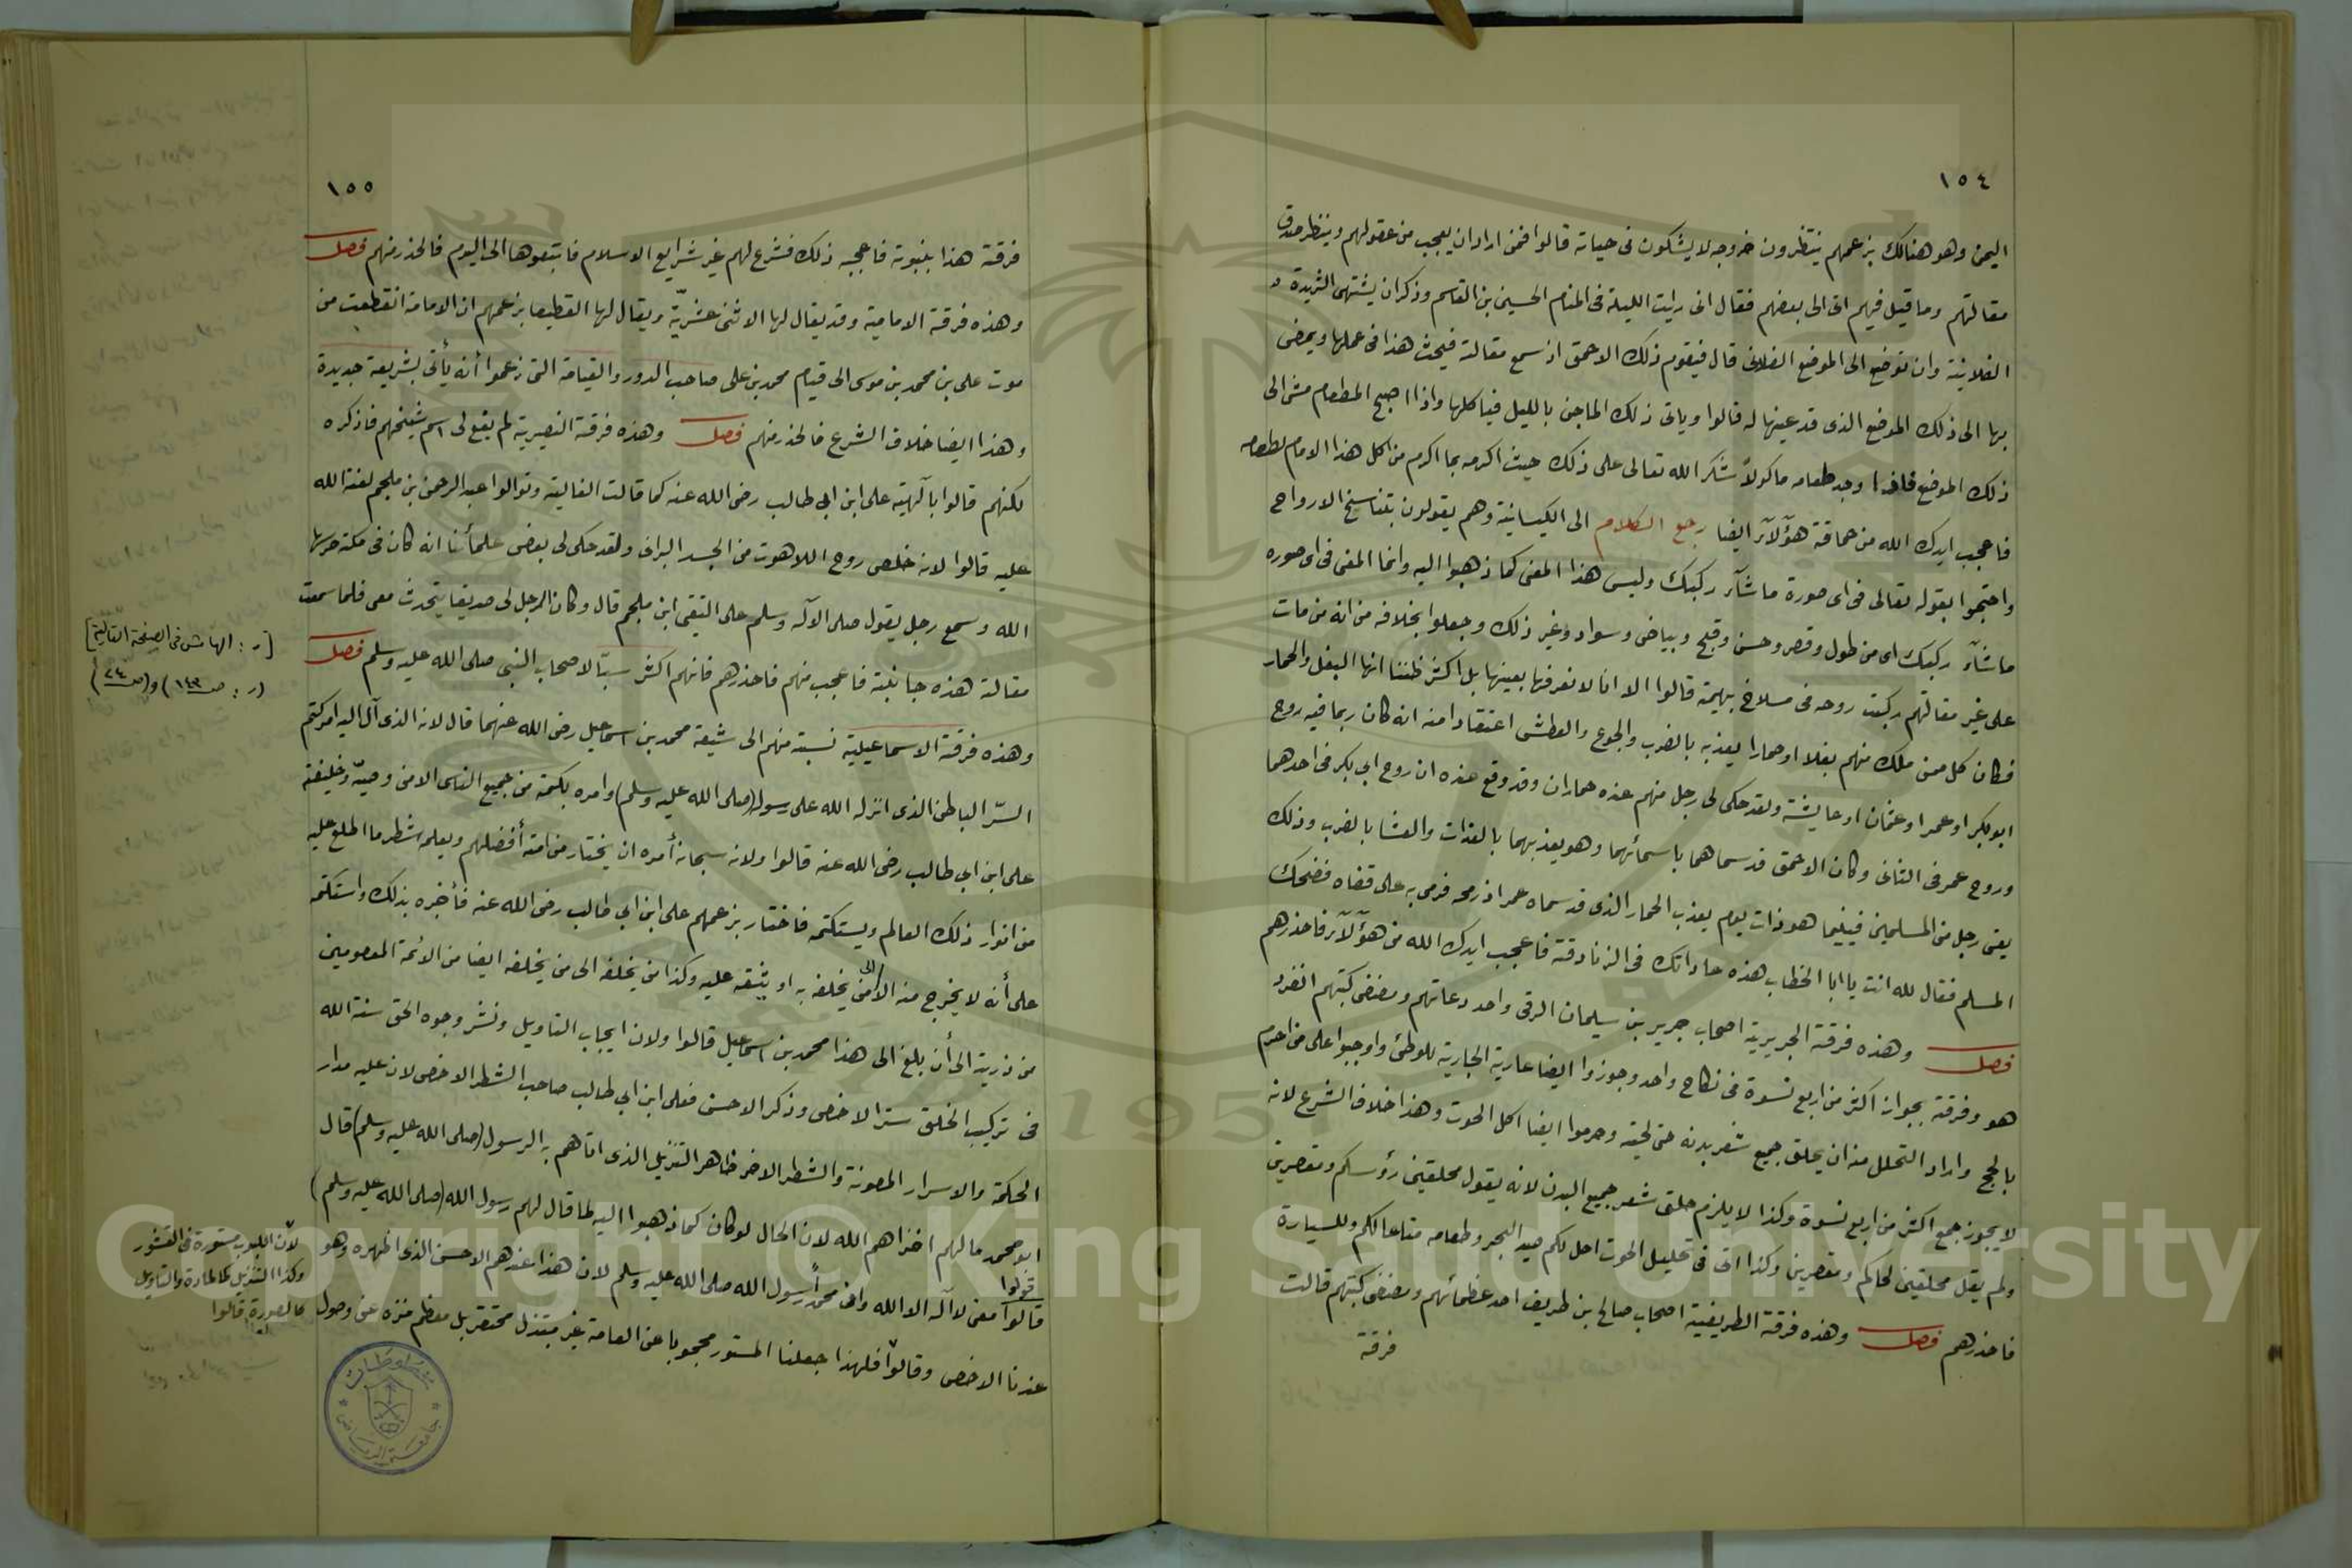 ١٥٤
اليمن وهو هنالك بزعمهم ينتظرون خروجه لا يشكون فى حياته قالوا فمن اراد ان يعجب من عقولهم وينظر صدق
مقالتهم وما قيل فيهم اتى الى بعضهم فقال انى رايت الليلة فى المنام الحسين بن القاسم وذكر ان يشتهى الثريدة
الفلانية وان توضع الى الموضع الفلانى قال فيقوم ذلك الاحمق اذ سمع مقالته فيحث هذا فى عملها ويمضى
بها الى ذلك الموضع الذى قد عينها له قالوا وياتى ذلك الماجن بالليل فياكلها واذا اصبح المطعام مشى الى
ذلك الموضع فاذا وجد طعامه ماكولاً شكر الله تعالى على ذلك حيث اكرمه بما اكرم من اكل هذا الامام لطعامه
فاعجب ايدك الله من حماقة هؤلآء ايضا رجع الكلام الى الكيسانية وهم يقولون بتناسخ الارواح
واحتجوا بقوله تعالى فى اى صورة ما شآء ركبك وليس هذا المعنى كما ذهبوا اليه وانما المعنى فى اى صوره
ما شآء ركبك اى من طول وقصر وحسن وقبح وبياض وسواد وغير ذلك وجعلوا بخلافه من انه من مات
على غير مقالتهم ركبت روحه فى مسلاخ بهيمة قالوا الا انا لا نعرفها بعينها بل اكثر ظننا انها البغل والحمار
فكان كل من ملك منهم بغلا او حمارا يعذبه بالضرب والجوع والعطش اعتقادا منه انه كان ربما فيه روح
ابو بكر او عمر او عثمان او عايشة ولقد حكى لى رجل منهم عنده حماران وقد وقع عنده ان روح ابى بكر فى احدهما
وروح عمر فى الثانى وكان الاحمق قد سماهما باسمائهما وهو يعذبهما بالغدات والعشا بالضرب وذلك
يعنى رجل من المسلمين فبينما هو ذات يوم يعذب الحمار الذى قد سماه عمر اذ رمحه فرمى به على قفاه فضحك
المسلم فقال لله انت يا ابا الخطاب هذه عاداتك فى الزنادقة فاعجب ايدك الله من هؤلآء فاحذرهم
فصل وهذه فرقة الجريرية اصحاب جرير بن سليمان الرقى واحد دعاتهم ومصنفى كتبهم انفرد
هو وفرقة بجواز اكثر من اربع نسوة فى نكاح واحد وجوزوا ايضا عارية الجارية للوطئ واوجبوا على من احرم
بالحج واراد التحلل منه ان يحلق جميع شعر بدنه حتى لحيته وحرموا ايضا اكل الحوت وهذا خلاف الشرع لانه
لا يجوز جمع اكثر من اربع نسوة وكذا لا يلزم حلق شعر جميع البدن لانه يقول محلقين رؤسكم ومقصرين
ولم يقل محلقين لحاكم ومقصرين وكذا اتى فى تحليل الحوت احل لكم صيد البحر وطعامه متاعا لكم وللسيارة
فاحذرهم فصل وهذه فرقة الطريفية اصحاب صالح بن طريف احد عظمائهم ومصنفى كتبهم قالت
فرقة
١٥٥
فرقة هذا بنبوته فاعجبه ذلك فشرع لهم غير شرايع الاسلام فاتبعوها الى اليوم فالحذر منهم فصل
وهذه فرقة الامامية وقد يقال لها الاثنى عشريّة ويقال لها القطيعا بزعمهم ان الامامة انقطعت من
موت على بن محمد بن موسى الى قيام محمد بن على صاحب الدور والقيامة التى زعموا أنه يأتى بشريعة جديدة
وهذا ايضا خلاف الشرع فالحذر منهم فصل وهذه فرقة النصيرية لم يقع لى اسم شيخهم فاذكره
لكنهم قالوا بآلهية على ابن ابى طالب رضى الله عنه كما قالت الغالية وتوالوا عبد الرحمن بن ملجم لعنة الله
عليه قالوا لانه خلص روح اللاهوت من الجسد البرانى ولقد حكى لى بعض علمائنا انه كان فى مكة حرسها
الله وسمع رجل يقول صلى الاله وسلم على التقى ابن ملجم قال وكان الرجل لى صديقا يتحدث معى فلما سمعت
مقالته هذه جانبته فاعجب منهم فاحذرهم فانهم اكثر سبّا لاصحاب النبى صلى الله عليه وسلم فصل
وهذه فرقة الاسماعيلية نسبته منهم الى شيعة محمد بن اسماعيل رضى الله عنهما قال لانه الذى آل اليه امر كتم
السرّ الباطن الذى انزله الله على رسوله (صلى الله عليه وسلم) وامره بكتمه من جميع الناس الا من وصيّه وخليفته
على ابن ابى طالب رضى الله عنه قالوا ولانه سبحانه أمره ان يختار من امته أفضلهم ويعلمه شطر ما اطلع عليه
من انوار ذلك العالم ويستكتمه فاختار بزعمهم على ابن ابى طالب رضى الله عنه فأخبره بذلك واستكتمه
على أنه لا يخرج منه الا الى من يخلفه به او يثقه عليه وكذا من يخلفه الى من يخلفه ايضا من الائمة المعصومين
من ذريته الى أن بلغ الى هذا محمد بن اسماعيل قالوا ولان ايجاب التاويل ونشر وجوه الحق سنة الله
فى تركيب الخلق ستر الاخص وذكر الاحسن فعلى ابن ابى طالب صاحب الشطر الاخص لان عليه مدار
الحكمة والاسرار المصونة والشطر الاخر ظاهر التنزيل الذى اتاهم به الرسول (صلى الله عليه وسلم) قال
ابو محمد ما لهم اخزاهم الله لان الحال لو كان كما ذهبوا اليه لما قال لهم رسول الله (صلى الله عليه وسلم)
قولوا
قالوا معنى لا آله الا الله وان محمداً رسول الله صلى الله عليه وسلم لان هذا عندهم الاحسن الذى اظهره وهو
عندنا الاخص وقالوا فلهذا جعلنا المستور محجوبا عن العامة غير مبتذل محتقر بل معظم منزه عن وصول
[ر: الهامش فى الصفحة التالية]
(ر: صـ ١٤٣) و (صـ ٢٤)
لأن اللبوب مستورة فى القشور
وكذا التنزيل كالمادة والتاويل
كالصورة قالوا
مخطوطات
جامعة الرياض
1957
Copyright © King Saud University